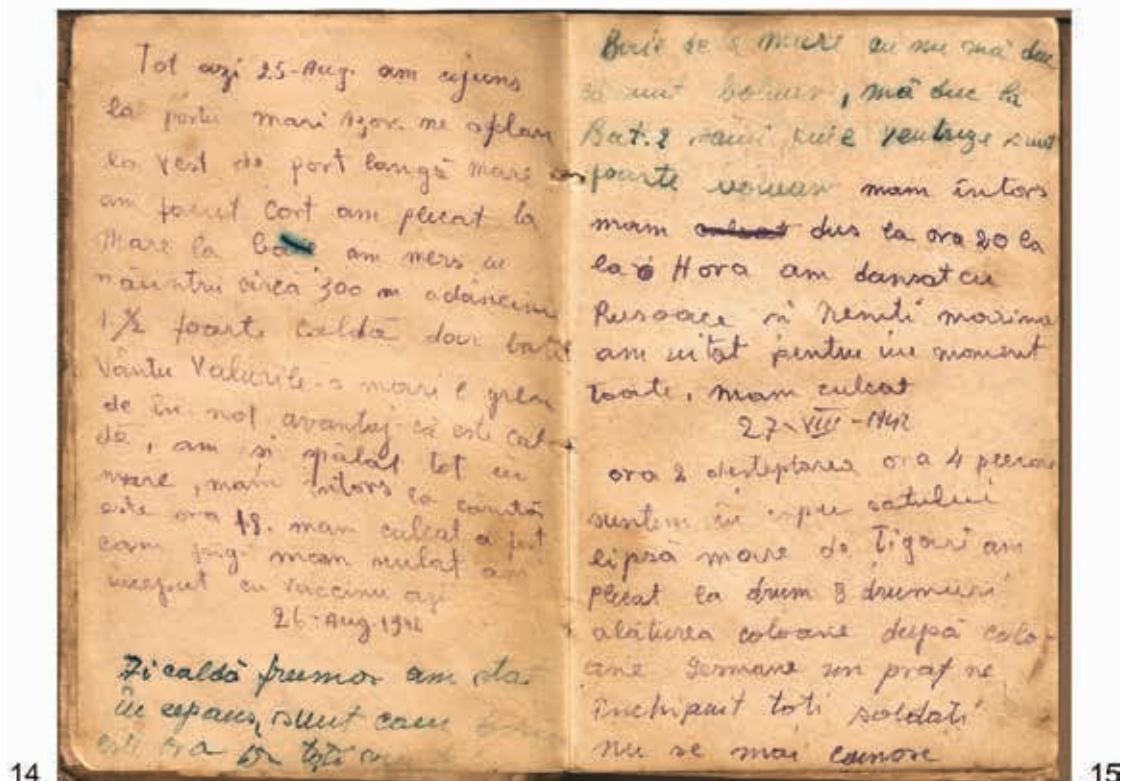 Tot azi 25-Aug. am ajuns
la portu mari azov. ne aflam
la vest de port langă mare
am facut cort am plecat la
mare la baie am mers cu
năuntru circa 300 m adancime
1 1/2 foarte caldă dar bate
Vântu Valurile-s mari e greu
de în not avantaj că este cal-
dă, am si spălat tot in
mare, mam întors la
este ora 18. mam culcat a fost
cam frig mam sculat am
inceput cu vaccinu azi
26-Aug-1942
Zi caldă frumos am stat
în repaus, sunt cam
este ora
14
Baie de mare eu nu mă duc
că sunt bolnav, mă duc la
Bat. 2 ventuze sunt
foarte mam întors
mam dus la ora 20 la
la Hora am dansat cu
Rusoace si Nemti marina
am uitat pentru un moment
toate, mam culcat
27-VIII-1942
ora 2 desteptarea ora 4 plecare
suntem in satului
lipsă mare de Tigari am
plecat la drum 3 drumuri
alăturea coloane după colo-
ane Germane un praf ne
închipuit toti soldati
nu se mai cunosc
15